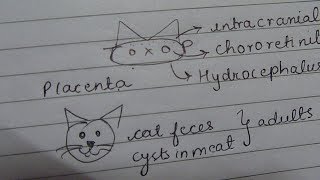 intracranial
o x o P
chororetinit
Hydrocephalus
Placenta
cat feces } adults
cysts in meat